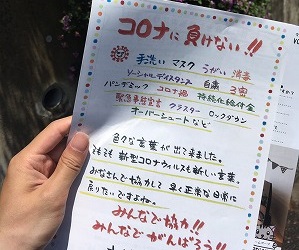 コロナに負けない!!
手洗い マスク うがい 消毒
ソーシャルディスタンス 自粛 3密
パンデミック コロナ禍 持続化給付金
緊急事態宣言 クラスター ロックダウン
オーバーシュートなど
色々な言葉が出て来ました。
そもそも 新型コロナウィルスも新しい言葉。
みなさんで協力して 早く正常な日常に
戻りたいですよね。
みんなで協力!!
みんなでがんばろう!!